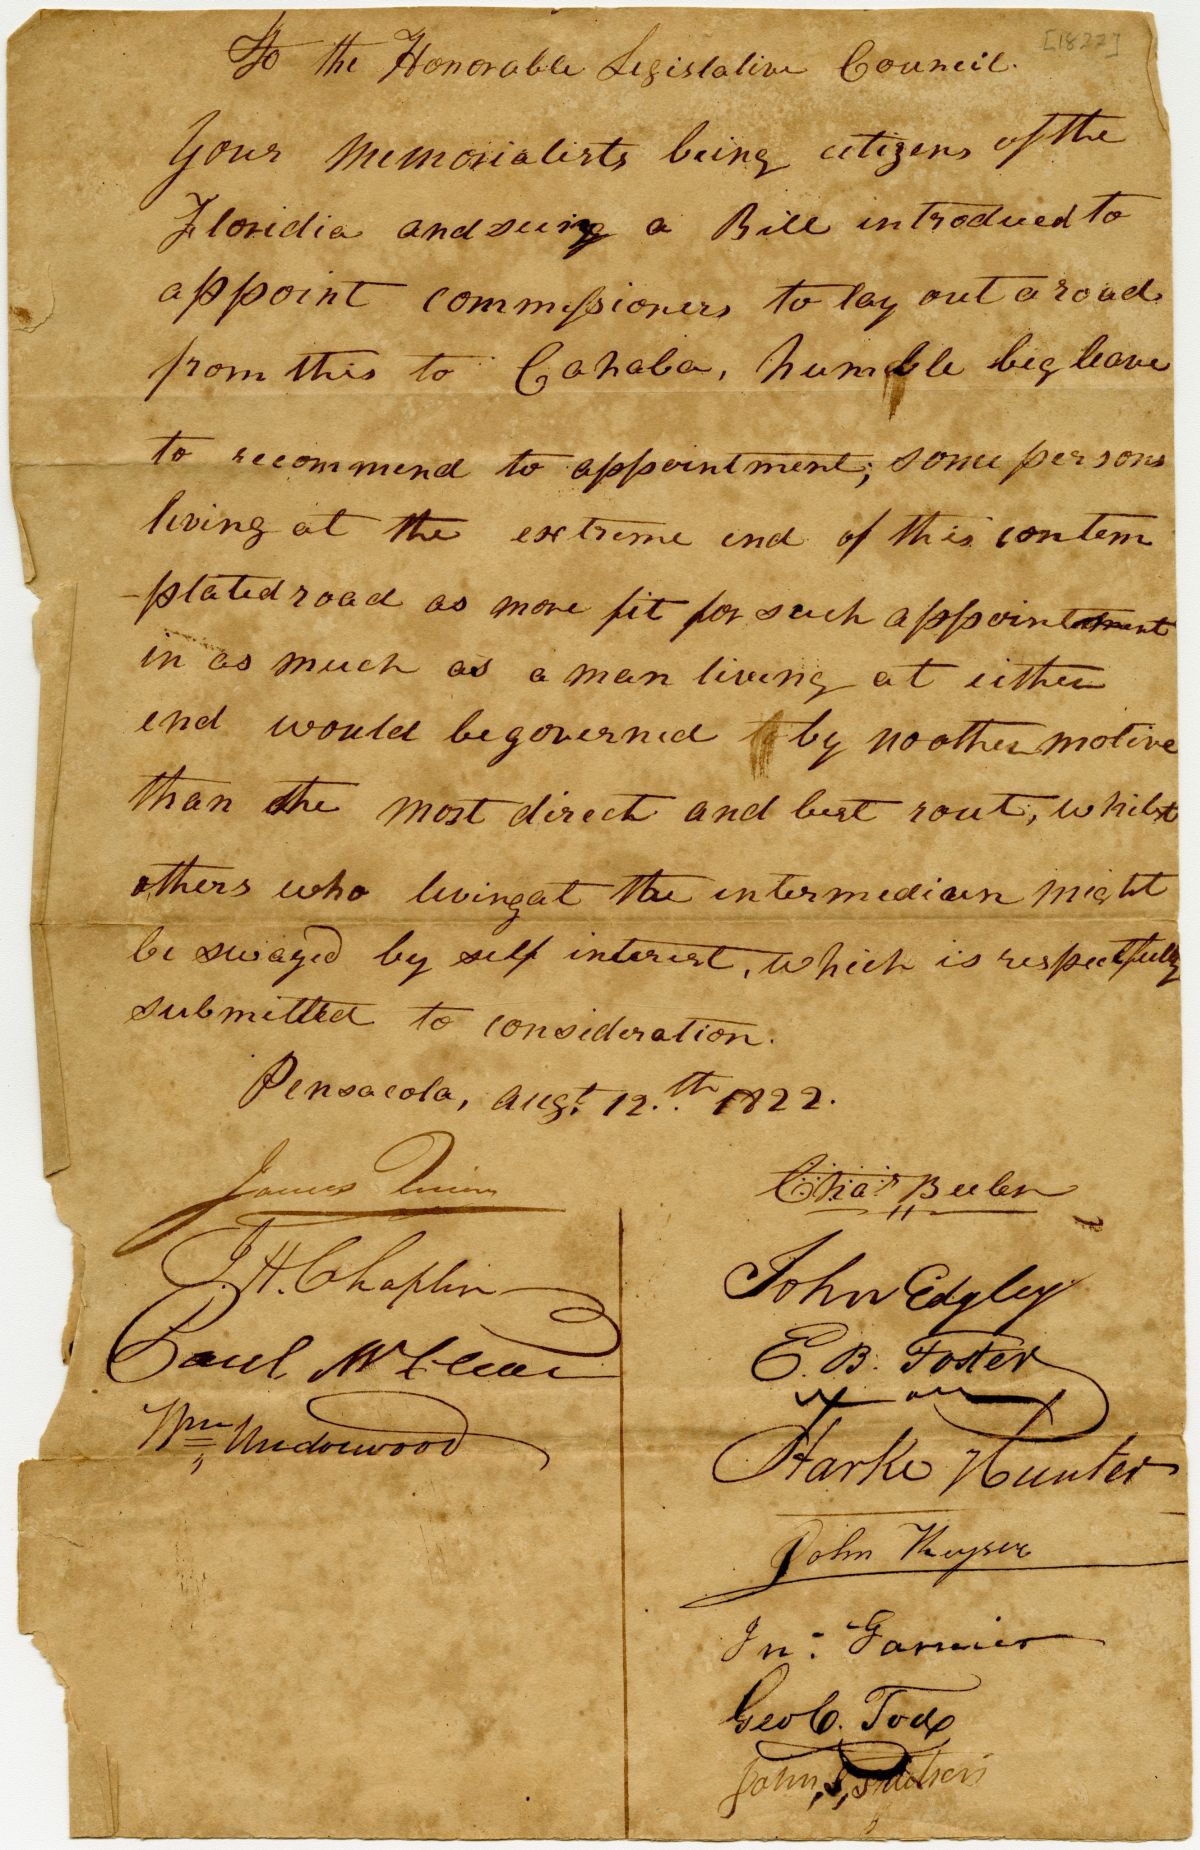 [1822]
To the Honorable Legislative Council.
Your memorialists being citizens of the
Floridia and seeing a Bill introdued to
appoint commissioners to lay out a road
from this to Cahaba, humble beg leave
to recommend to appointment; some persons
living at the extreme end of this contem
-plated road as more fit for such appointment
in as much as a man living at either
end would be governed by no other motive
than the most direct and best rout, whilst
others who living at the intermedian might
be swayed by self interest, which is respectfully
submitted to consideration.
Pensacola, Augt. 12.th 1822.
James
J. H. Chaplin
Paul McLean
Wm Underwood
Chas Beeler
John Edgley
E. B. Foster
Starke Hunter
John Keyser
Jno. Garnier
Geo C. Tod
John